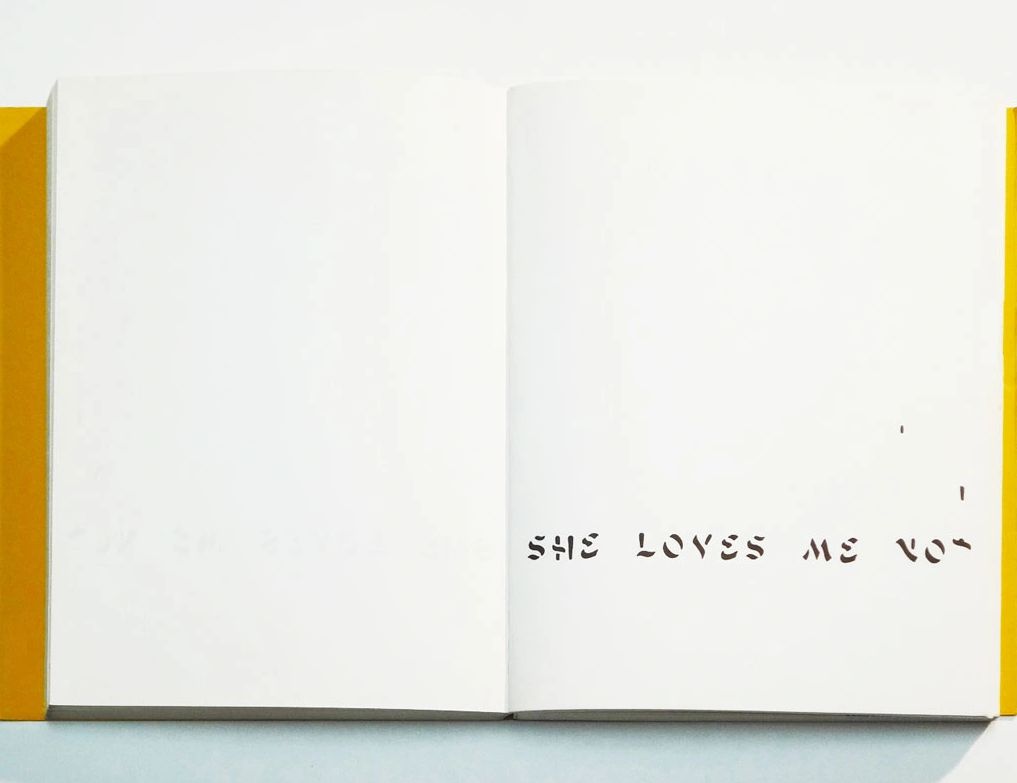 SHE LOVES ME NOT